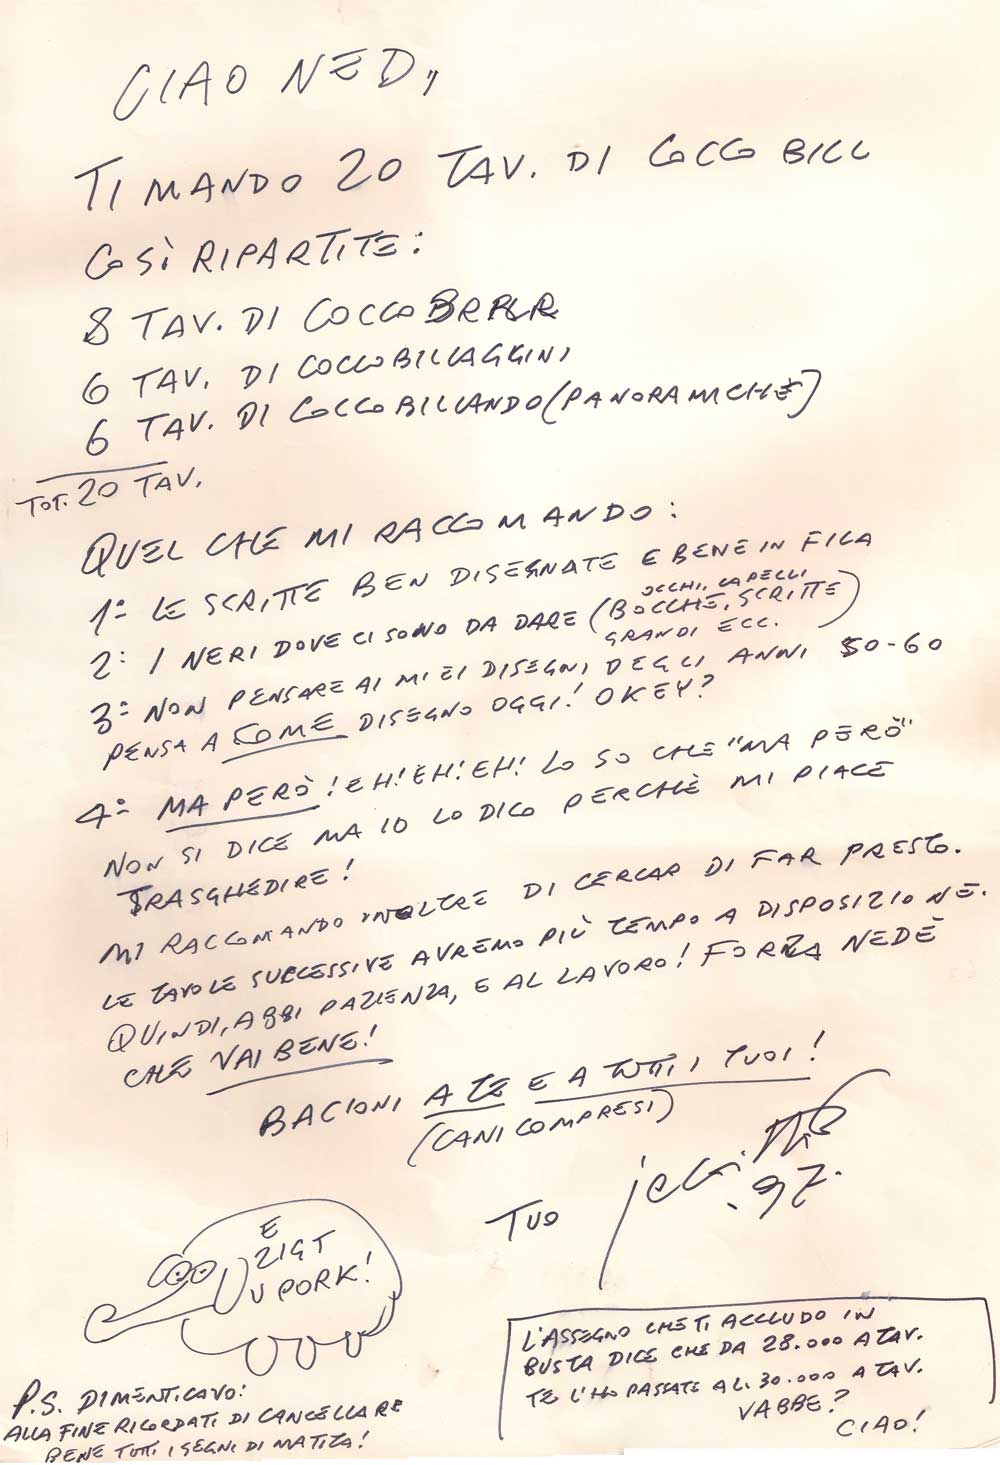 CIAO NED,,
TI MANDO 20 TAV. DI COCCO BILL
COSÌ RIPARTITE:
8 TAV. DI COCCO
6 TAV. DI COCCOBILLAGGINI
6 TAV. DI COCCOBILLANDO (PANORAMICHE)
TOT. 20 TAV.
QUEL CHE MI RACCOMANDO:
1° LE SCRITTE BEN DISEGNATE E BENE IN FILA
OCCHI, CAPELLI
2: I NERI DOVE CI SONO DA DARE (BOCCHE, SCRITTE
GRANDI ECC.)
3° NON PENSARE AI MIEI DISEGNI DEGLI ANNI 50-60
PENSA A COME DISEGNO OGGI! OKEY?
4° MA PERÒ! EH! EH! EH! LO SO CHE "MA PERÒ"
NON SI DICE MA IO LO DICO PERCHÈ MI PIACE
TRASGHEDIRE!
MI RACCOMANDO INOLTRE DI CERCAR DI FAR PRESTO.
LE TAVOLE SUCCESSIVE AVREMO PIÙ TEMPO A DISPOSIZIONE.
QUINDI, ABBI PAZIENZA, E AL LAVORO! FORZA NEDÈ
CHE VAI BENE!
BACIONI A TE E A TUTTI I TUOI!
(CANI COMPRESI)
TUO jacovitti
.97.
E
ZIGT
U PORK!
L'ASSEGNO CHE TI ACCLUDO IN
BUSTA DICE CHE DA 28.000 A TAV.
TE L'HO PASSATE AL. 30.000 A TAV.
VABBE?
CIAO!
P.S. DIMENTICAVO:
ALLA FINE RICORDATI DI CANCELLARE
BENE TUTTI I SEGNI DI MATITA!